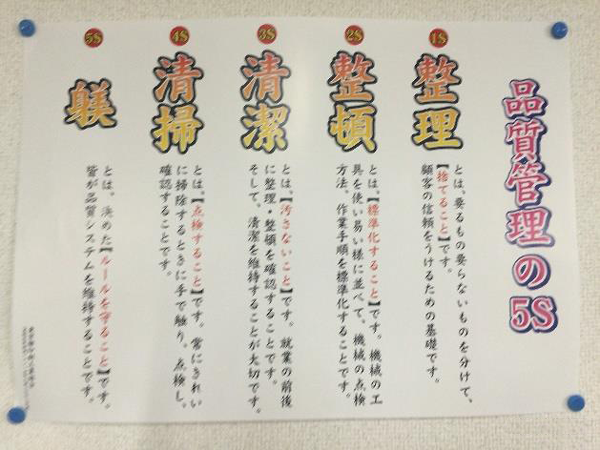 品質管理の5S
1S
整理
とは、要るもの要らないものを分けて、
【捨てること】です。
顧客の信頼をうけるための基礎です。
2S
整頓
とは、【標準化すること】です。機械の工
具を使い易い様に並べて、機械の点検
方法、作業手順を標準化することです。
3S
清潔
とは、【汚さないこと】です。就業の前後
に整理・整頓を確認することです。
そして、清潔を維持することが大切です。
4S
清掃
とは、【点検すること】です。常にきれい
に掃除するときに手で触り、点検し、
確認することです。
5S
躾
とは、決めた【ルールを守ること】です。
皆が品質システムを維持することです。